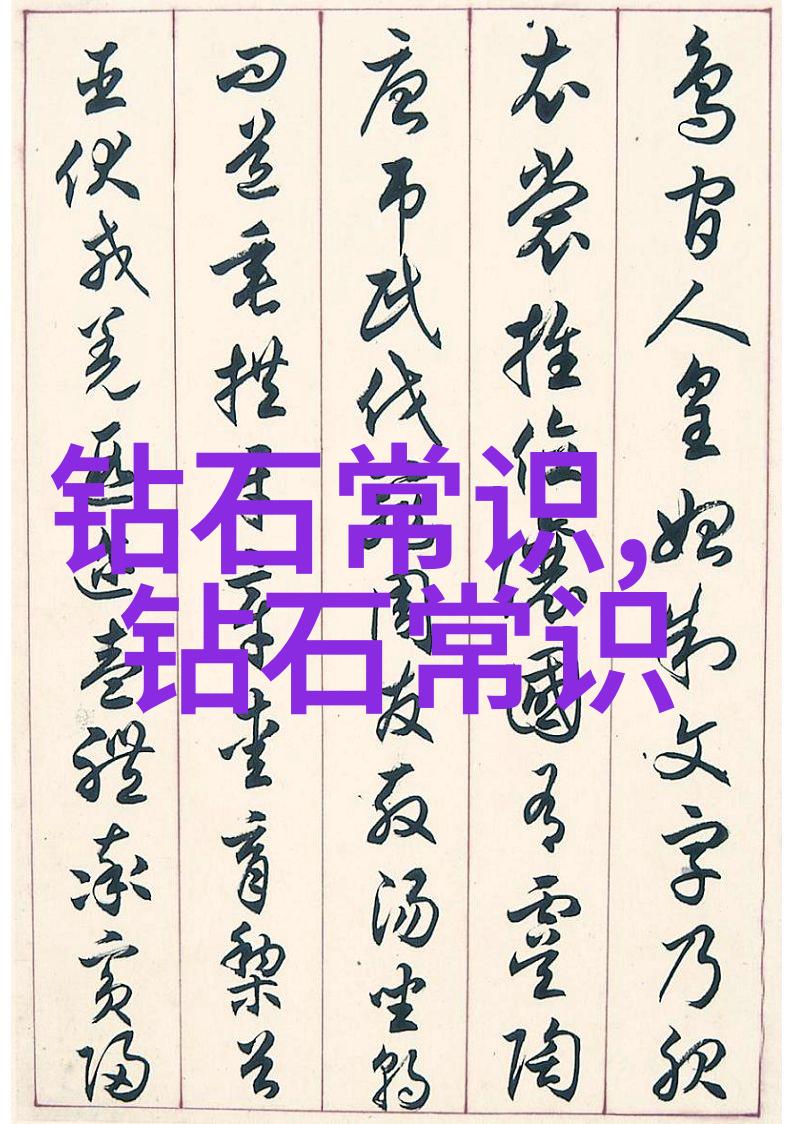 鳥官人皇始制文字乃服
衣裳推位讓國有虞陶
唐吊民伐罪周發殷湯坐朝
問道垂拱平章愛育黎首
臣伏戎羌遐邇壹體率賓歸
钻石常识,
钻石常识